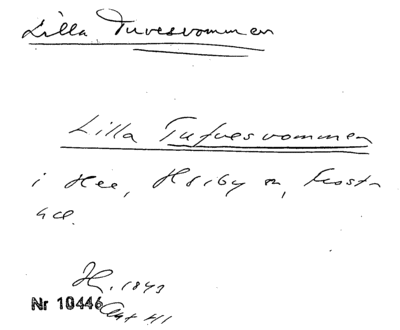 Lilla Tuvesvommen
Lilla Tufvesvommen
i Hee, Hörby sn, Frosta
hd.
H. 1843
Nr 10446 Akt 41